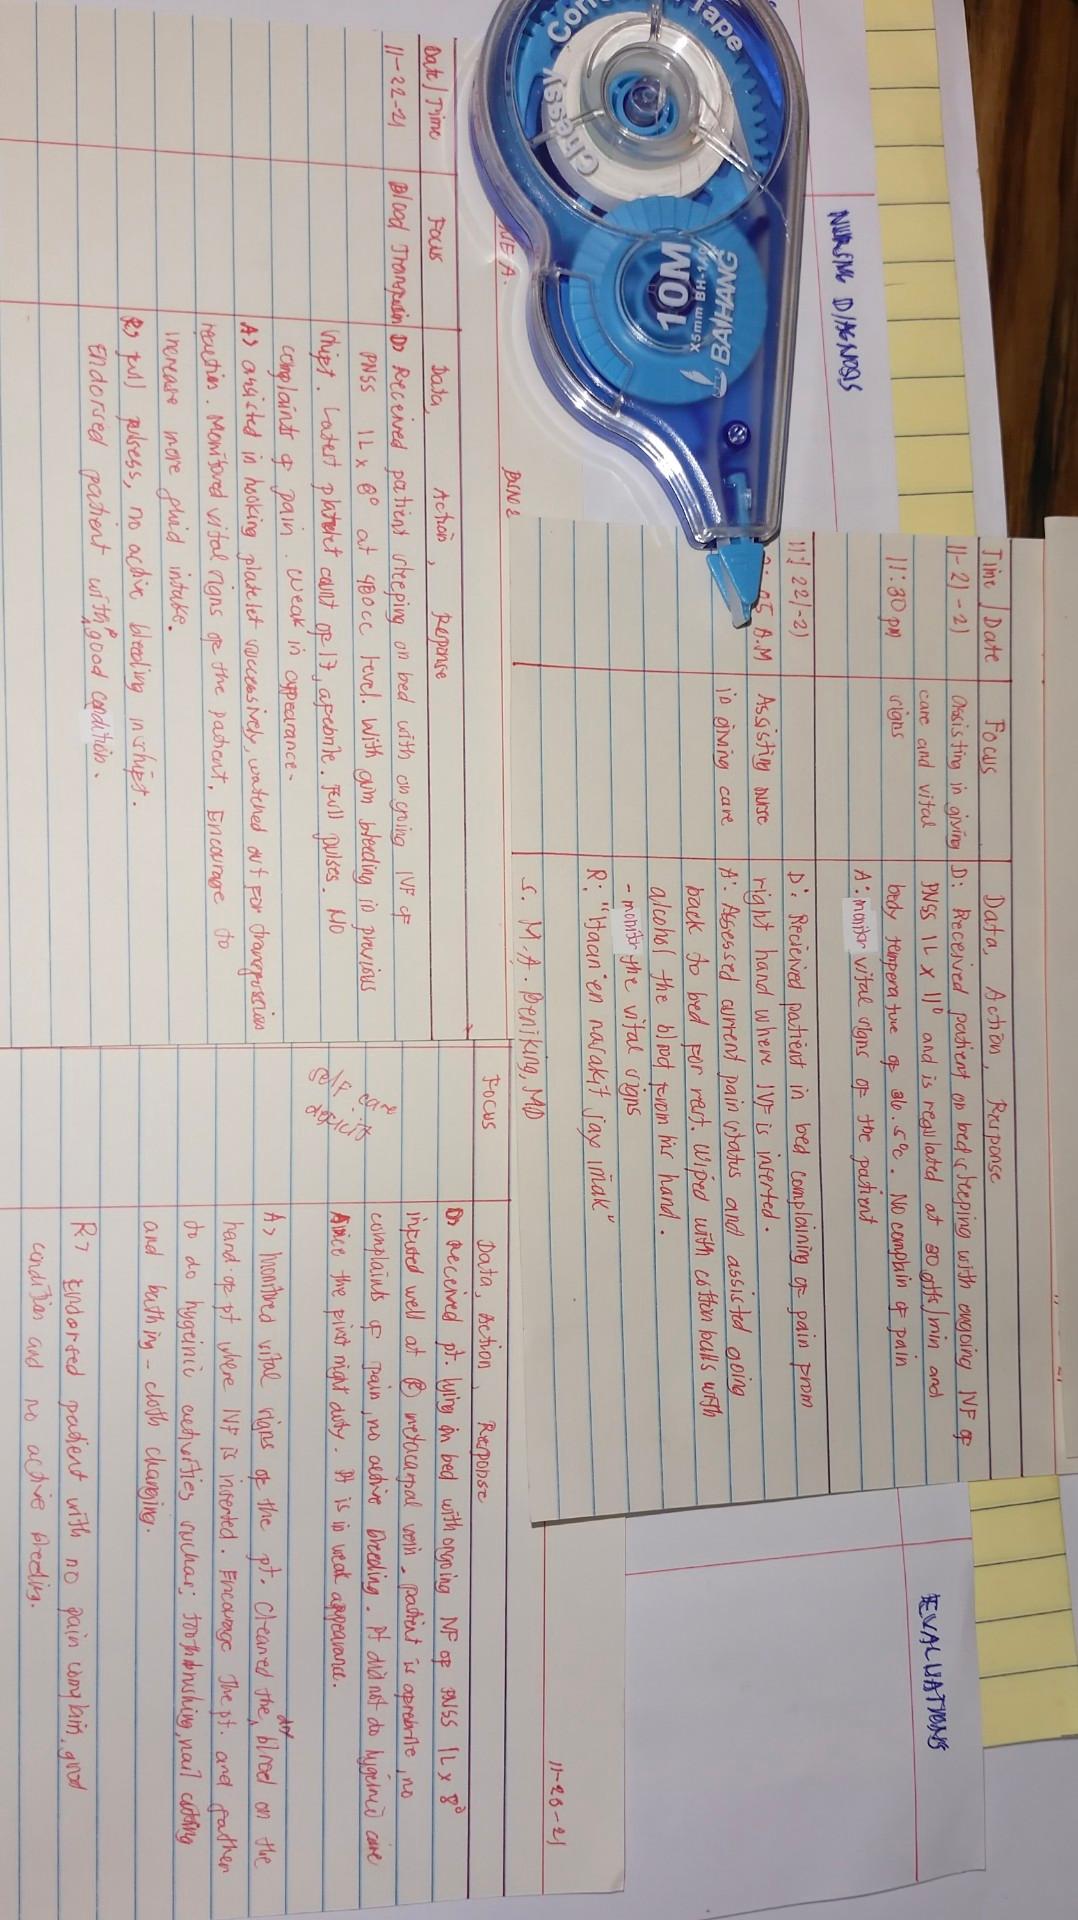 Correction Tape
Chessy
10M
X5mm BH-140
BAIHANG
NURSING DIAGNOSIS
EVALUATIONS
Time / Date Focus Data, Action, Response
11-21-21 assisting in giving D: Received patient on bed sleeping with ongoing IVF of
care and vital PNSS 1L x 11° and is regulated at 30 gtts/min and
11:30 pm signs body temperature of 36.5°c. No complain of pain
A: monitor vital signs of the patient
11/22/-21 D: Recieved patient in bed complaining of pain from
:05 A.M Assisting nurse right hand where IVF is inserted.
in giving care A: Assessed current pain status and assisted going
back to bed for rest. Wiped with cotton balls with
alcohol the blood from his hand.
- monitor the vital signs
R: "Haan en nasakit jay imak"
S. M.A. Beniking, MD
Date/Time Focus Data, Action, Reponse
11-22-21 Blood Transfusion D> Received patient sleeping on bed with ongoing IVF of
PNSS 1L x 8° at 480cc level. With gum bleeding in previous
shift. Latest platelet count of 17, afebrile. Full pulses. No
complaints of pain. weak in appearance.
A> assisted in hooking platelet successively, watched out for transfusion
reaction. Monitored vital signs of the patient. Encourage to
increase more fluid intake.
R> full pulsess, no active bleeding in shift.
Endorsed patient with good condition.
11-26-21
Focus Data, Action, Response
self care deficit D> received pt. lying on bed with ongoing IVF of PNSS 1L x 8°
infused well at R metacarpal vein. patient is afebrile, no
complaints of pain, no active bleeding. Pt did not do hygeinic care
since the first night duty. Pt is in weak appearance.
A> Monitored vital signs of the pt. Cleaned the dry blood on the
hand of pt where IVF is inserted. Encourage The pt. and father
to do hygeinic activities suchas; toothbrushing, nail cutting
and bathing - cloth changing.
R> Endorsed patient with no pain complain, good
condition and no active bleeding.